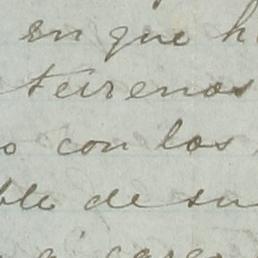 en que h
terrenos
o con los
ble de su